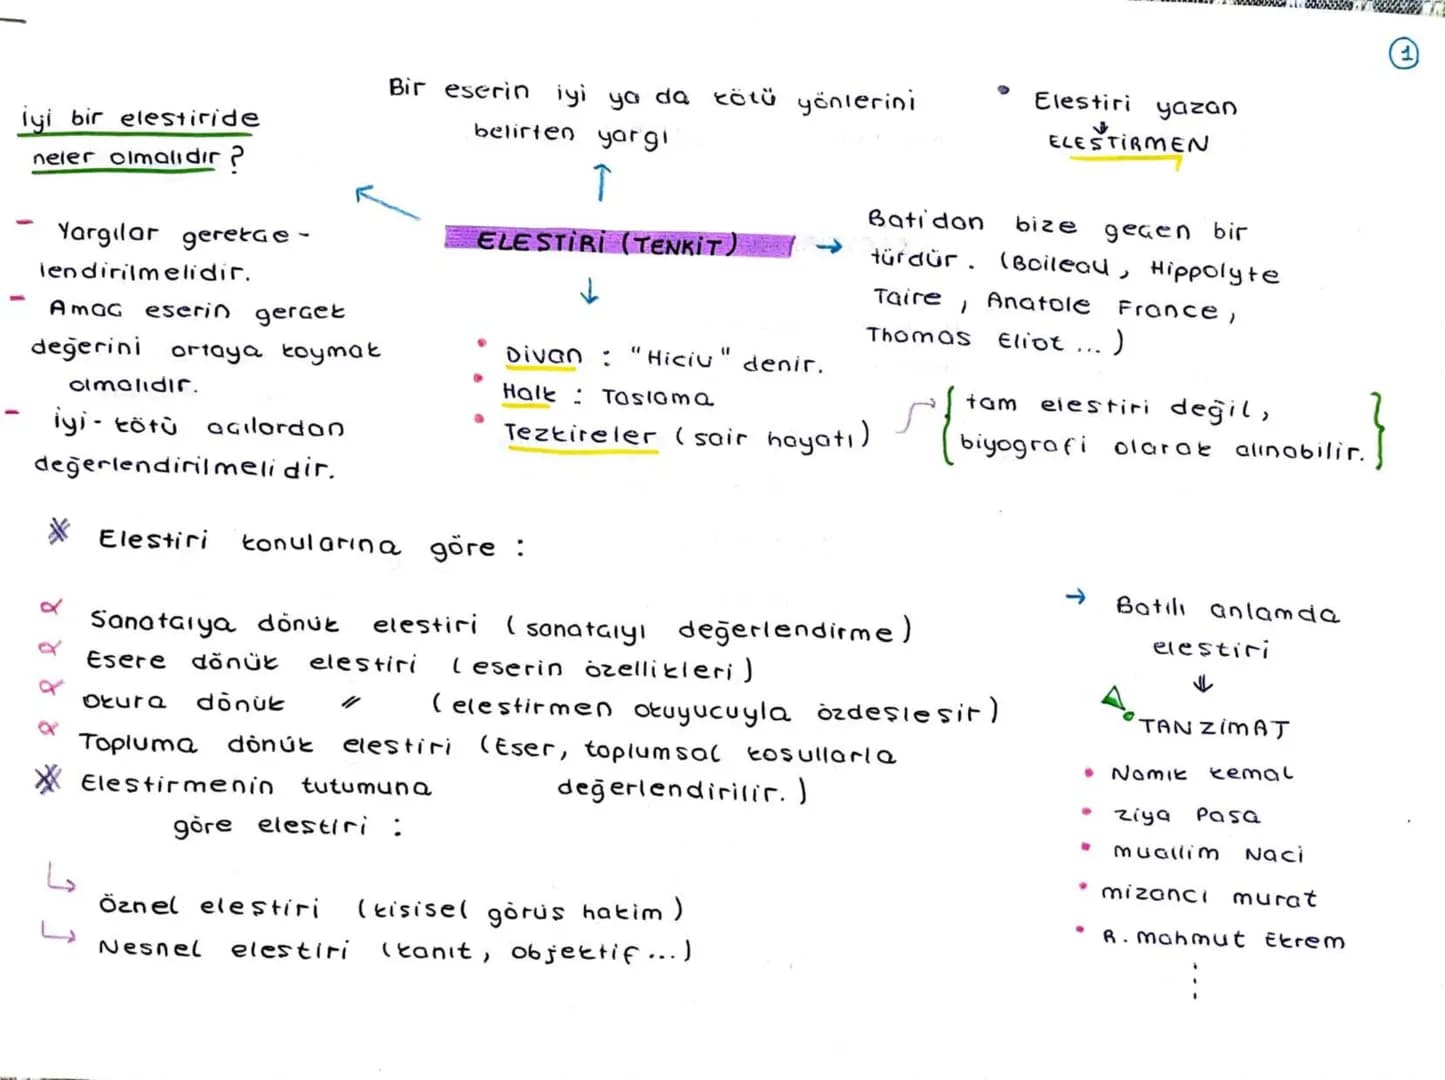 1
Bir eserin iyi ya da kötü yönlerini
belirten yargı
• Eleştiri yazan
ELEŞTİRMEN
iyi bir eleştiride
neler olmalıdır?
- Yargılar gerekçe-
lendirilmelidir.
- Amaç eserin gerçek
değerini ortaya koymak
olmalıdır.
- İyi-kötü açılardan
değerlendirilmelidir.
ELEŞTİRİ (TENKİT) →
Batı'dan bize geçen bir
türdür. (Boileau, Hippolyte
Taire, Anatole France,
Thomas Eliot ...)
• Divan : "Hiciv" denir.
• Halk : Taşlama
• Tezkireler (şair hayatı)
{ tam eleştiri değil,
biyografi olarak alınabilir. }
* Eleştiri konularına göre :
α Sanatçıya dönük eleştiri (sanatçıyı değerlendirme)
α Esere dönük eleştiri (eserin özellikleri)
α Okura dönük " (eleştirmen okuyucuyla özdeşleşir)
α Topluma dönük eleştiri (Eser, toplumsal koşullarla
değerlendirilir.)
* Eleştirmenin tutumuna
göre eleştiri :
↳ Öznel eleştiri (kişisel görüş hakim)
↳ Nesnel eleştiri (kanıt, objektif...)
→ Batılı anlamda
eleştiri
⇓
TANZİMAT
• Namık Kemal
• Ziya Paşa
• muallim Naci
• mizancı murat
• R. mahmut Ekrem